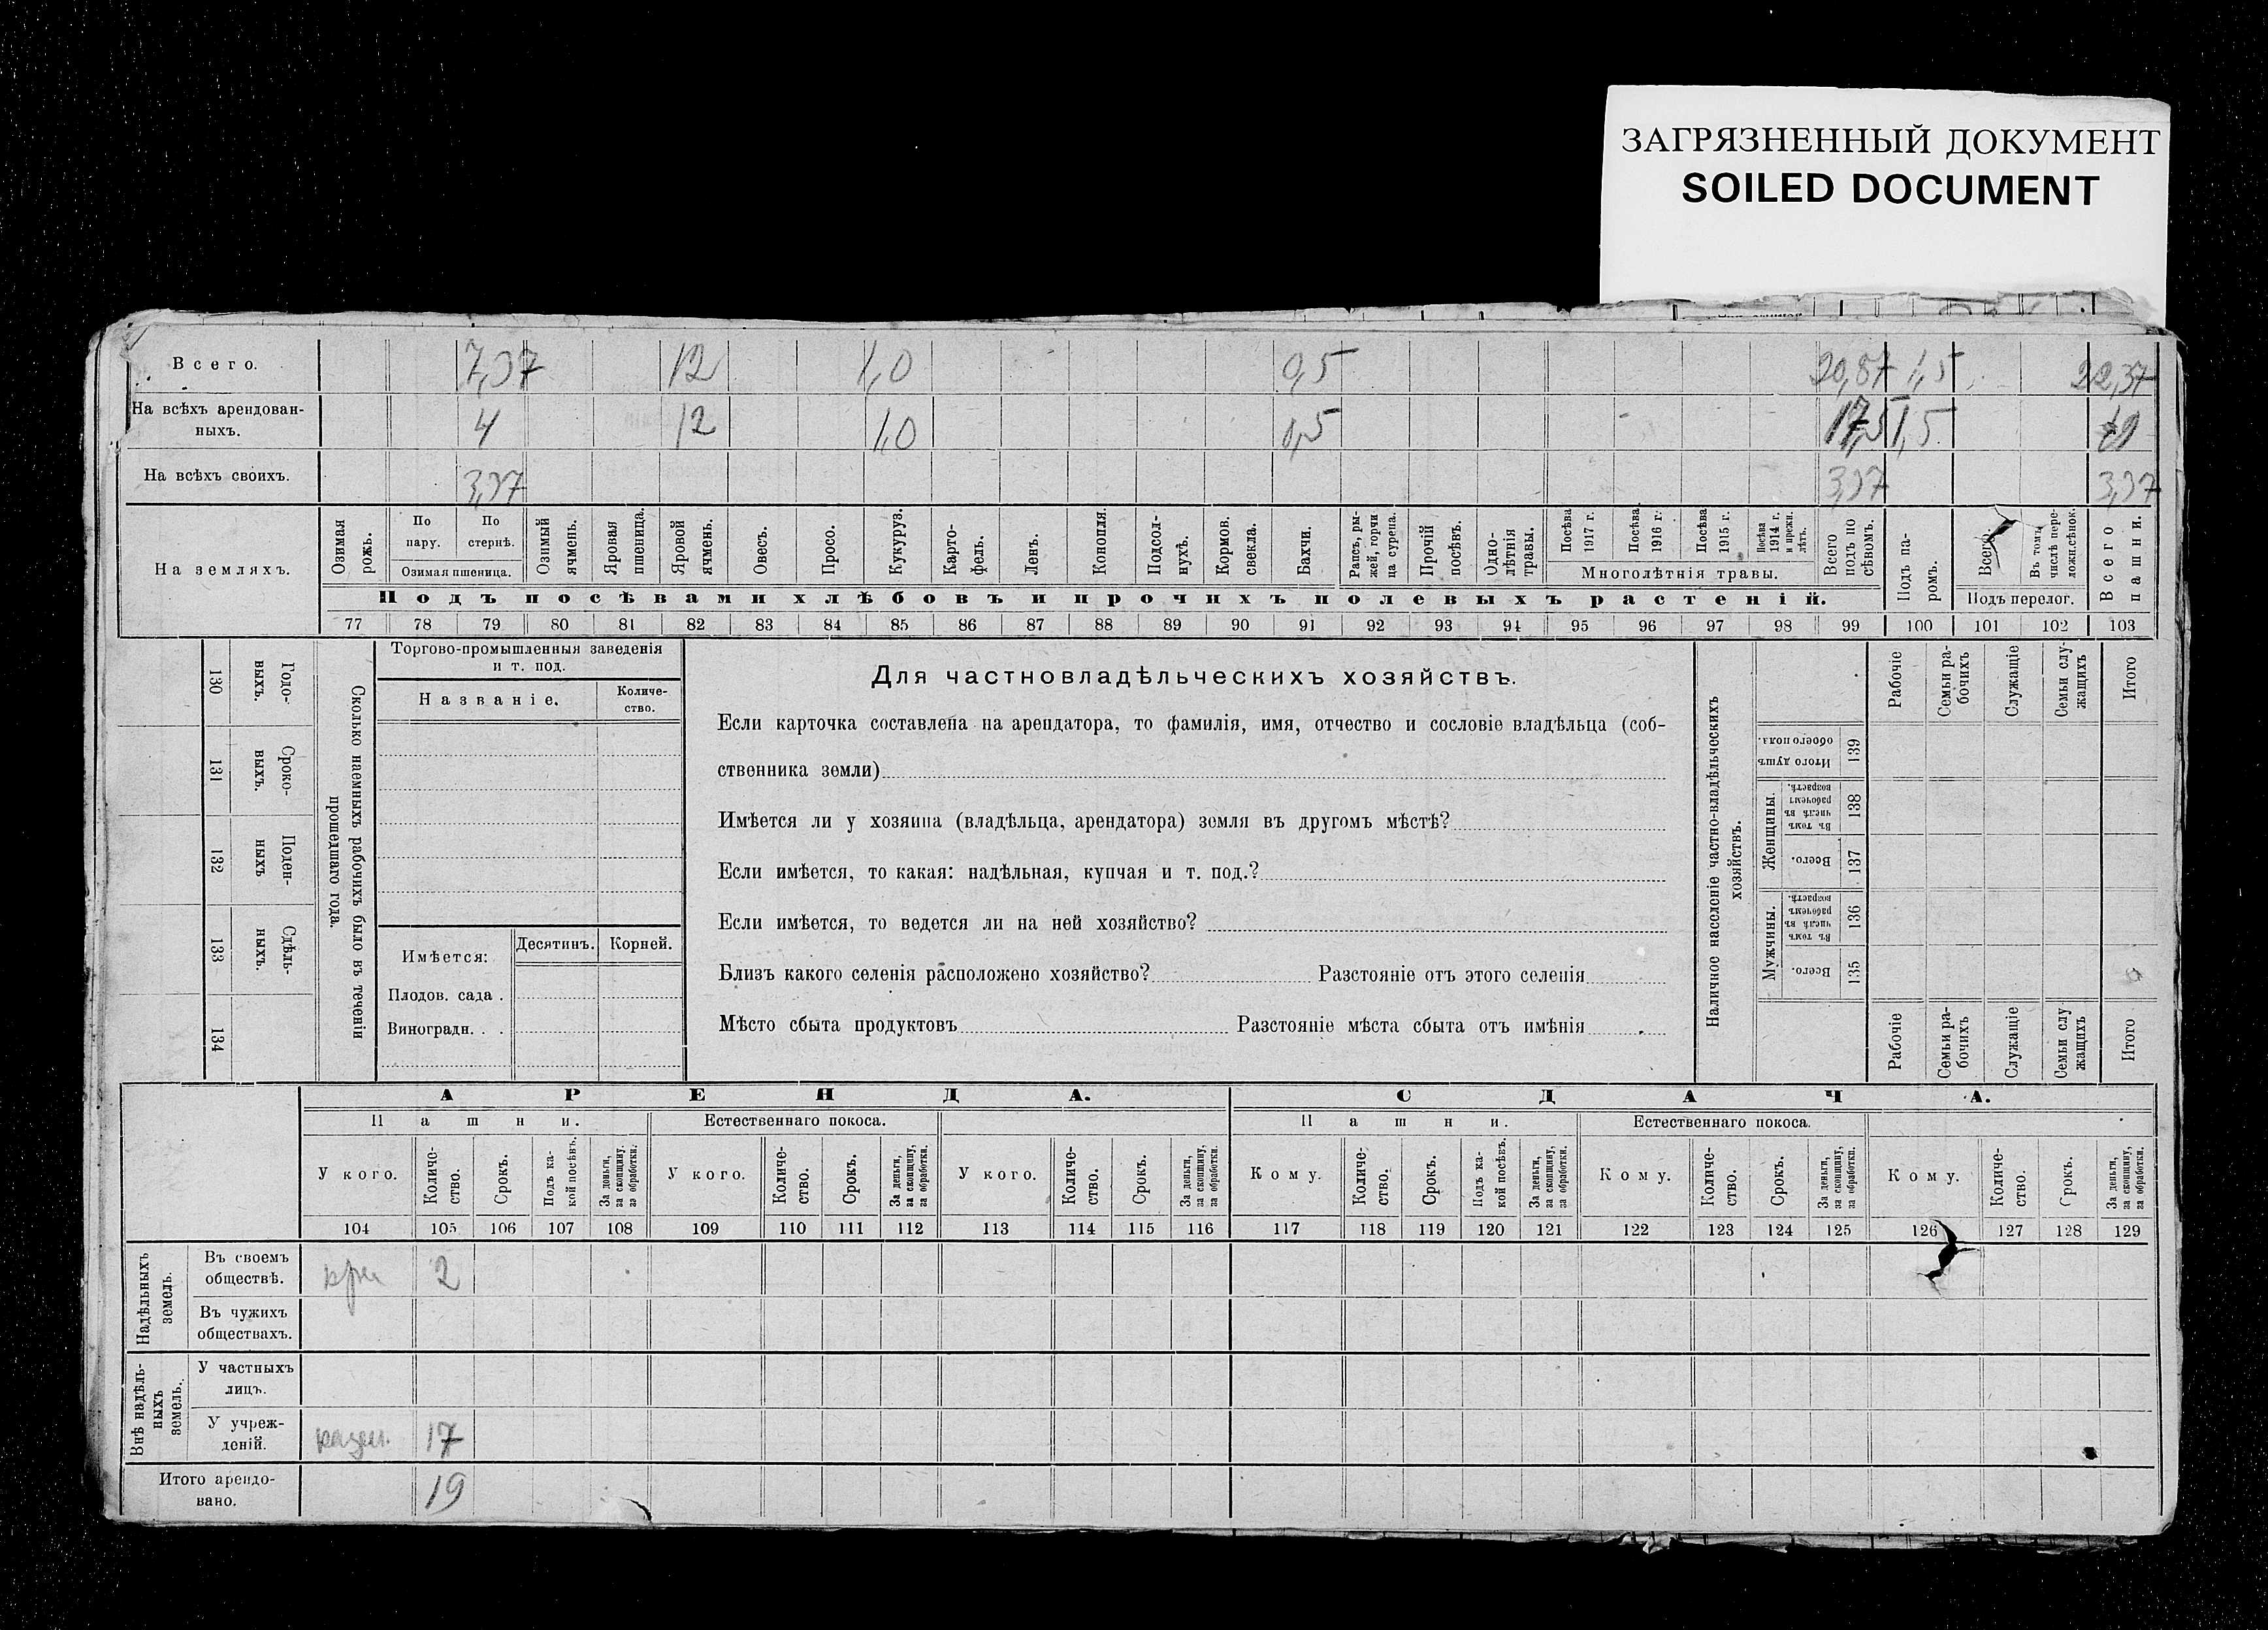 ЗАГРЯЗНЕННЫЙ ДОКУМЕНТ
SOILED DOCUMENT
Всего. 7,37 12 1,0 0,5 20,87 1,5 22,37
На всѣхъ арендован-
ныхъ. 4 12 1,0 0,5 17,5 1,5 19
На всѣхъ своихъ. 3,37 3,37 3,37
На земляхъ.
Озимая рожь.
По пару.
По стернѣ.
Озимая пшеница.
Озимый ячмень.
Яровая пшеница.
Яровой ячмень.
Овесъ.
Просо.
Кукуруз.
Карто-
фель.
Ленъ.
Конопля.
Подсол-
нухъ.
Кормов. свекла.
Бахчи.
Рапсъ, ры-
жей, горчи
ца сурепа.
Прочій посѣвъ.
Одно-
лѣтнія травы.
Посѣва 1917 г.
Посѣва 1916 г.
Посѣва 1915 г.
Посѣва 1914 г. и прежн. лѣтъ.
Многолѣтнія травы.
Всего подъ по
сѣвомъ.
Подъ па-
ромъ.
Всего
Въ томъ числѣ пере-
ложн. сѣнок.
Подъ перелог.
Всего пашни.
Подъ посѣвами хлѣбовъ и прочихъ полевыхъ растеній.
77 78 79 80 81 82 83 84 85 86 87 88 89 90 91 92 93 94 95 96 97 98 99 100 101 102 103
130 Годо-
ныхъ.
131 Сроко-
ныхъ.
132 Поден-
ныхъ
133 Сдѣль-
ныхъ.
134
Сколько наемныхъ рабочихъ было въ теченіи
прошедшаго года.
Торгово-промышленныя заведенія
и т. под.
Названіе.
Количе-
ство.
Имѣется:
Десятинъ. Корней.
Плодов. сада .
Виноградн. . .
Для частновладѣльческихъ хозяйствъ.
Если карточка составлена на арендатора, то фамилія, имя, отчество и сословіе владѣльца (соб-
ственника земли)
Имѣется ли у хозяина (владѣльца, арендатора) земля въ другомъ мѣстѣ?
Если имѣется, то какая: надѣльная, купчая и т. под.?
Если имѣется, то ведется ли на ней хозяйство?
Близъ какого селенія расположено хозяйство? Разстояніе отъ этого селенія
Мѣсто сбыта продуктовъ Разстояніе мѣста сбыта отъ имѣнія
Наличное населеніе частно-владѣльческихъ
хозяйствъ.
Рабочіе
Семьи ра-
бочихъ
Служащіе
Семьи слу-
жащихъ
Итого
Итого душъ обоего пола. 139
Женщины.
Въ томъ числѣ въ рабочемъ возрастѣ. 138
Всего. 137
Мужчины.
Въ томъ числѣ въ рабочемъ возрастѣ. 136
Всего. 135
Рабочіе
Семьи ра-
бочихъ
Служащіе
Семьи слу
жащихъ
Итого
АРЕНДА. СДАЧА.
Пашни. Естественнаго покоса. Пашни. Естественнаго покоса.
У кого. Количе-
ство. Срокъ. Подъ ка-
кой посѣвъ. За деньги, за скопщину, за обработки. У кого. Количе-
ство. Срокъ. За деньги, за скопщину, за обработки. У кого. Количе-
ство. Срокъ. За деньги, за скопщину, за обработки. Кому. Количе-
ство. Срокъ. Подъ ка-
кой посѣвъ. За деньги, за скопщину, за обработки. Кому. Количе-
ство. Срокъ. За деньги, за скопщину, за обработки. Кому. Количе-
ство. Срокъ. За деньги, за скопщину, за обработки.
104 105 106 107 108 109 110 111 112 113 114 115 116 117 118 119 120 121 122 123 124 125 126 127 128 129
Надѣльныхъ земель.
Въ своемъ
обществѣ. 2
Въ чужихъ
обществахъ.
Внѣ надѣль-
ныхъ земель.
У частныхъ
лицъ.
У учреж-
деній. казен. 17
Итого арендо-
вано. 19